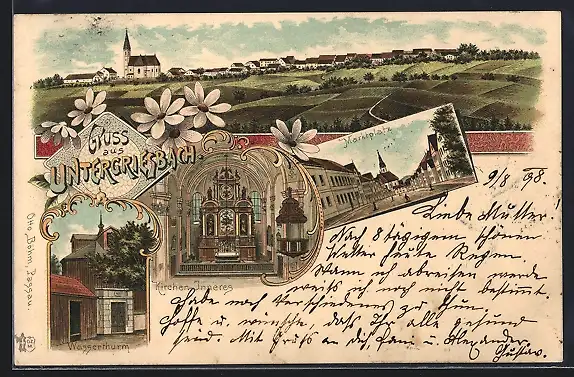 Gruss
aus
UNTERGRIESBACH.
Marktplatz
Kirchen-Inneres
Wasserthurm
Otto Böhm, Passau.
9/8 98.
Liebe Mutter!
Nach 8 tägigem schönen
Wetter heute Regen.
Wann ich abreisen werde
weiss ich noch nicht bestimmt.
Habe noch Verschiedenes zu thun.
Hoffe u. wünsche, dass Ihr alle gesund
seid. Mit Gruss an dich, Fani u. Alexander
Gustav.